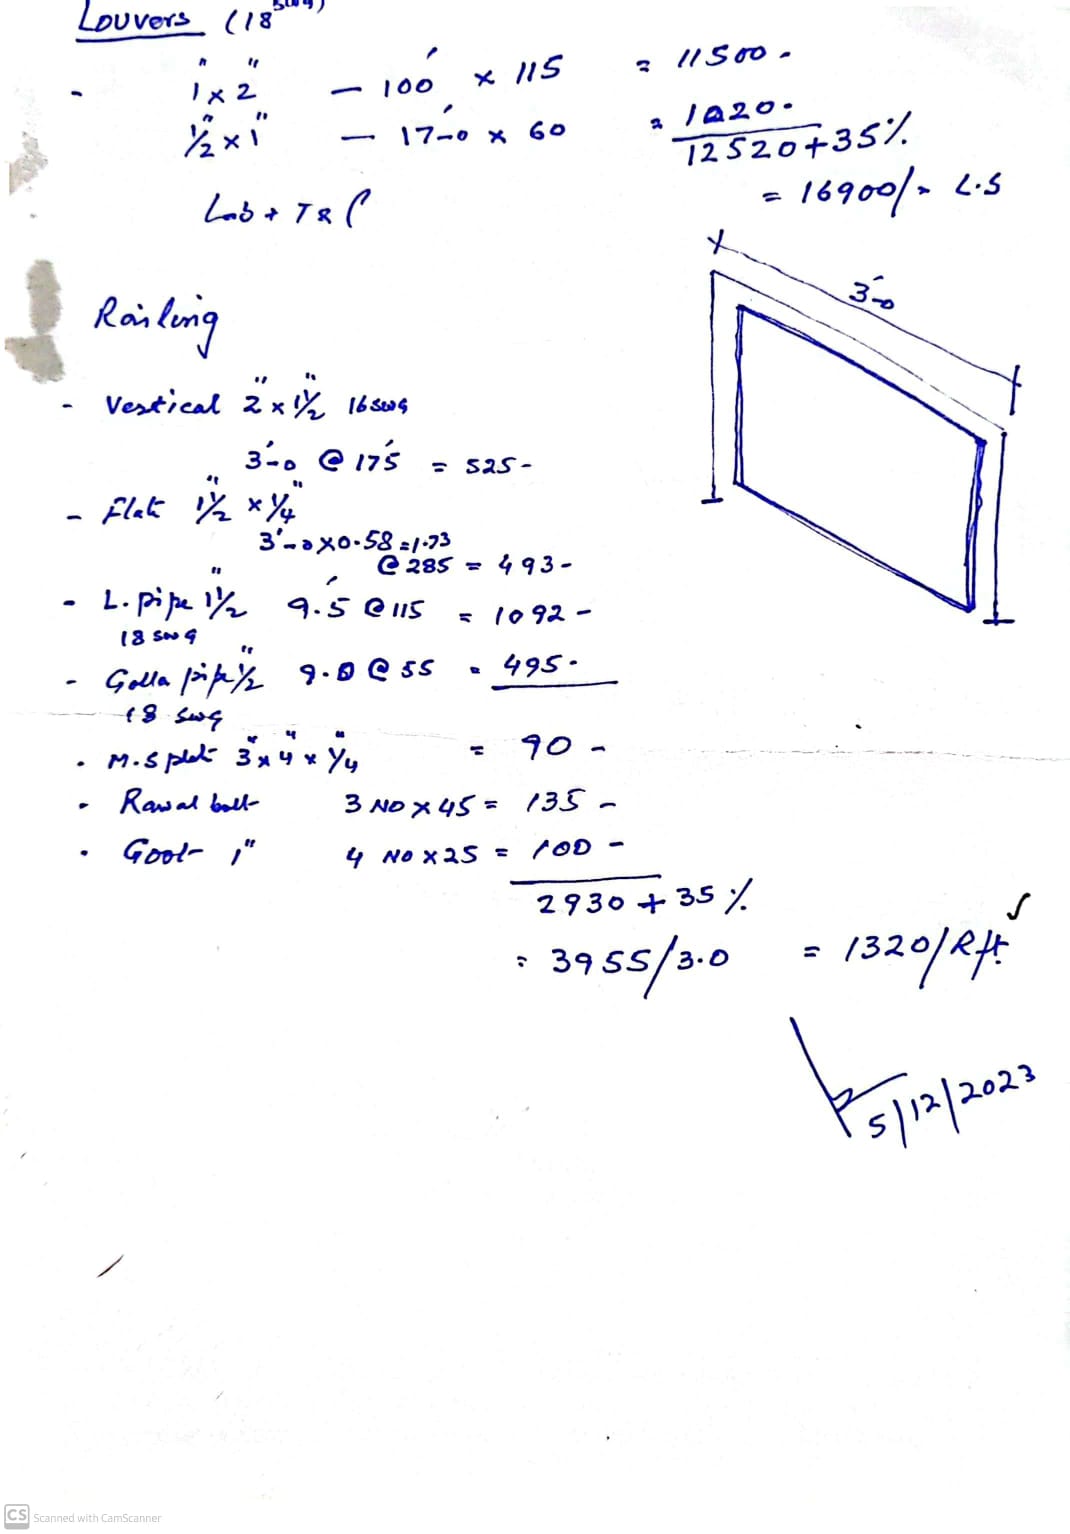 Louvers (18 swg)
- 1"x2" — 100' x 115 = 11500-
½"x1" — 17'-0 x 60 = 1020-
12520+35%
Lab + T & P = 16900/- L.S
3'-0
Railing
- Vertical 2"x1½" 16 swg
3'-0 @ 175 = 525-
- Flat 1½" x ¼"
3'-0 x 0.58 = 1.73
@ 285 = 493-
- L. pipe 1½" 9.5' @ 115 = 1092-
18 swg
- Golla pipe ½" 9.0 @ 55 = 495-
18 swg
- M.S plat 3"x4"x¼" = 90-
- Rawal bolt 3 NO x 45 = 135-
- Goot 1" 4 NO x 25 = 100-
2930 + 35%
= 3955/3.0 = 1320/Rft
5/12/2023
CS Scanned with CamScanner